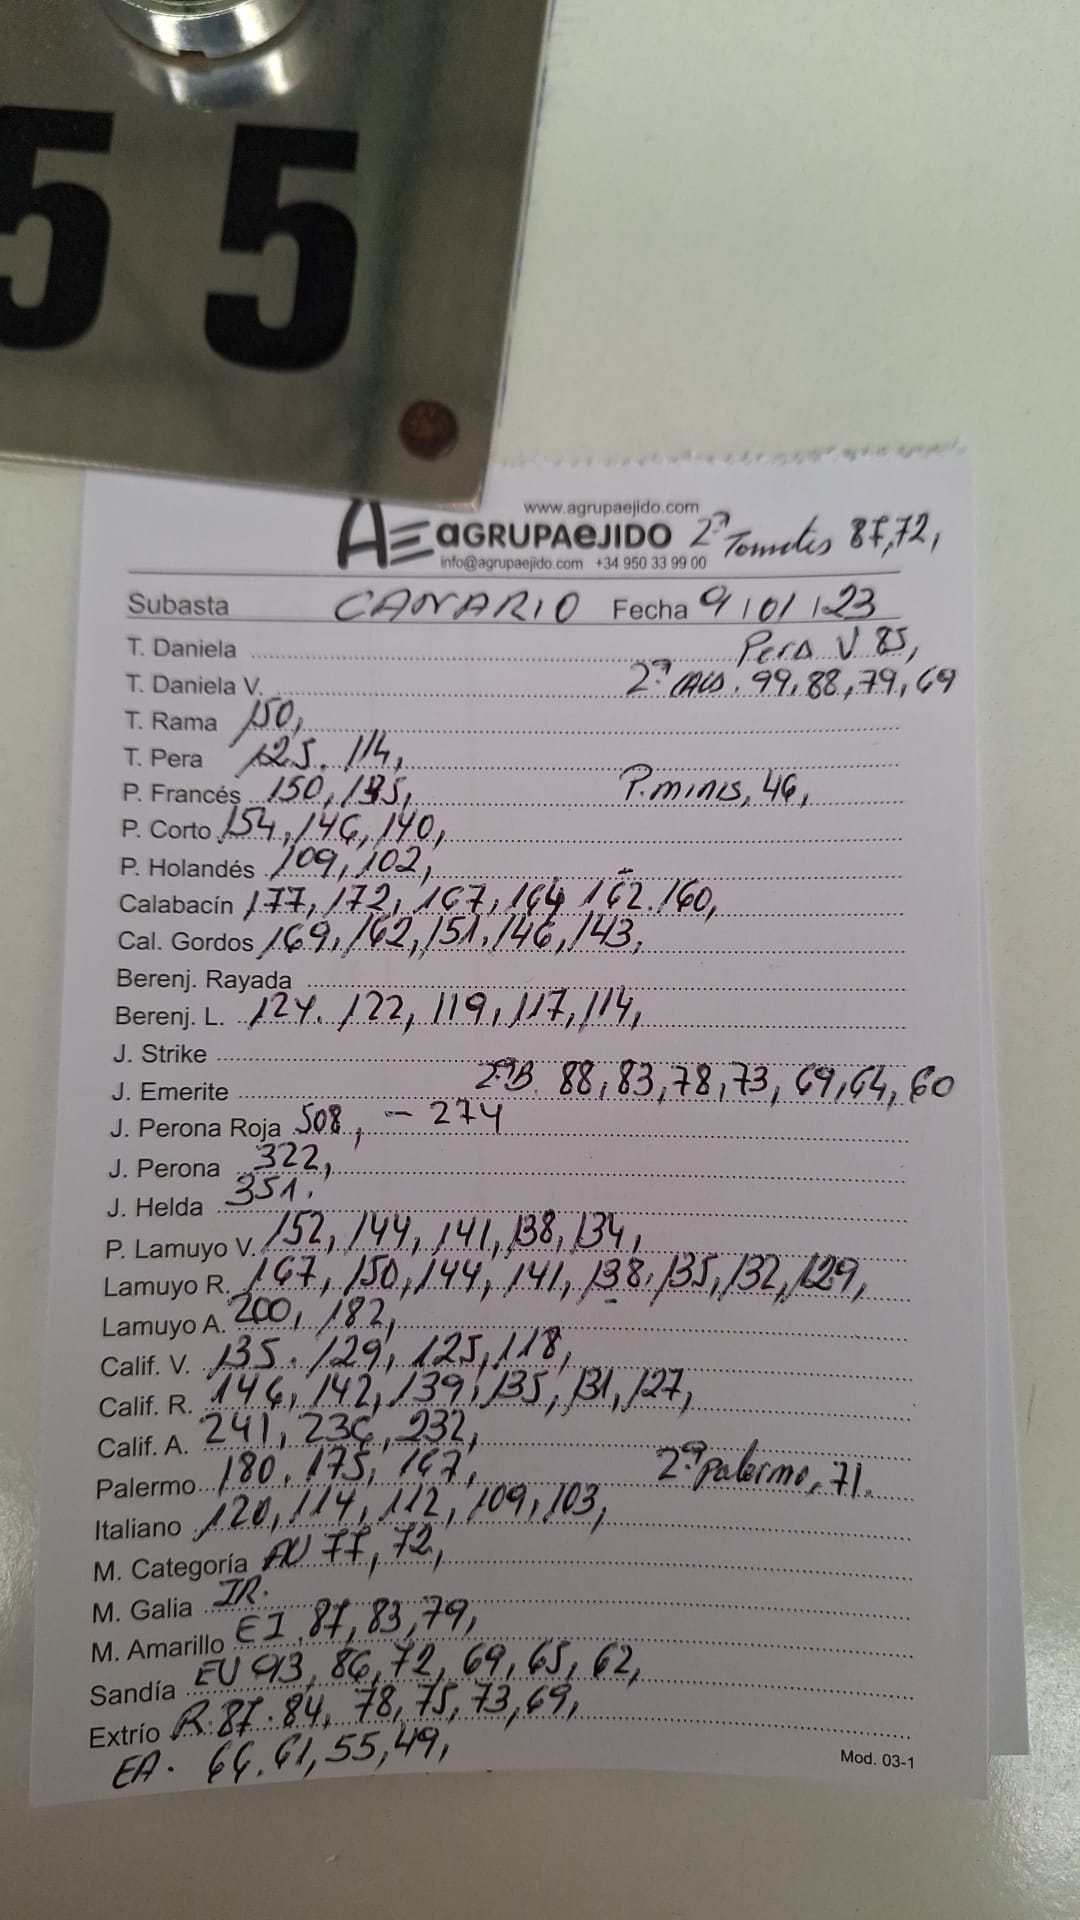 55
www.agrupaejido.com
AE aGRUPAeJIDO 2ª Tomates 87,72,
info@agrupaejido.com +34 950 33 99 00
Subasta CANARIO Fecha 9/01/23
T. Daniela Pera V 85,
T. Daniela V. 2ª CALS. 99,88,79,69
T. Rama 150,
T. Pera 125. 114,
P. Francés 150,135, P.minis, 46,
P. Corto 154,146,140,
P. Holandés 109,102,
Calabacín 177,172,167,164 162.160,
Cal. Gordos 169,162,151,146,143,
Berenj. Rayada
Berenj. L. 124. 122, 119, 117, 114,
J. Strike
J. Emerite 2ªB. 88,83,78,73,69,64,60
J. Perona Roja 508, - 274
J. Perona 322,
J. Helda 351.
P. Lamuyo V. 152, 144, 141, 138, 134,
Lamuyo R. 167, 150, 144, 141, 138, 135, 132, 129,
Lamuyo A. 200, 182,
Calif. V. 135. 129, 125, 118,
Calif. R. 146, 142, 139, 135, 131, 127,
Calif. A. 241, 236, 232,
Palermo 180, 175, 167, 2ª palermo, 71.
Italiano 120, 114, 112, 109, 103,
M. Categoría AU 77, 72,
M. Galia IR.
M. Amarillo EI. 87, 83, 79,
Sandía EU 93, 86, 72, 69, 65, 62,
Extrío R. 87. 84, 78, 75, 73, 69,
EA. 66. 61, 55, 49,
Mod. 03-1